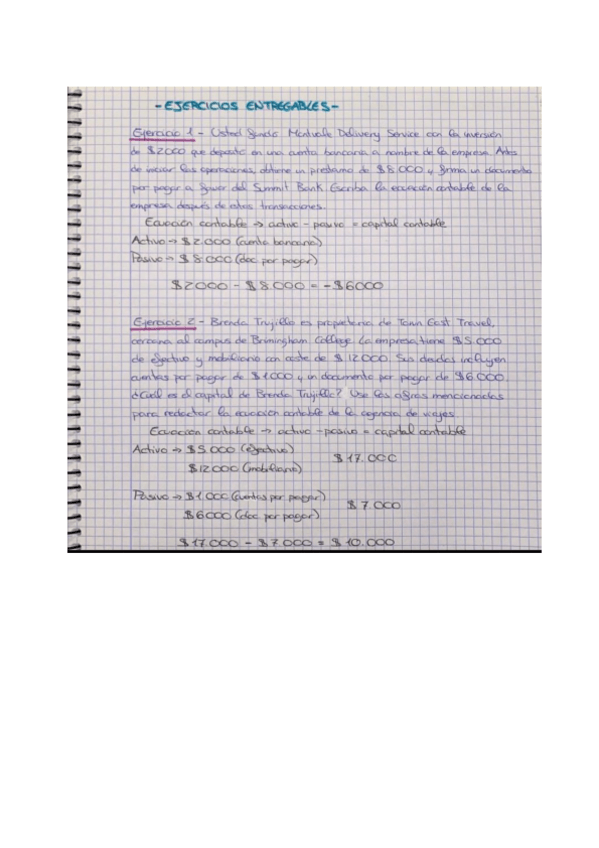 - EJERCICIOS ENTREGABLES -
Ejercicio 1 - Usted fundó Montvale Delivery Service con la inversión
de $2000 que depositó en una cuenta bancaria a nombre de la empresa. Antes
de iniciar las operaciones, obtiene un préstamo de $8000 y firma un documento
por pagar a favor del Summit Bank. Escriba la ecuación contable de la
empresa después de estas transacciones.
Ecuación contable → activo - pasivo = capital contable
Activo → $2.000 (cuenta bancaria)
Pasivo → $8.000 (doc por pagar)
$2000 - $8000 = -$6000
Ejercicio 2 - Brenda Trujillo es propietaria de Town East Travel,
cercana al campus de Brimingham College. La empresa tiene $5.000
de efectivo y mobiliario con coste de $12000. Sus deudas incluyen
cuentas por pagar de $1000 y un documento por pagar de $6.000.
¿Cuál es el capital de Brenda Trujillo? Use las cifras mencionadas
para redactar la ecuación contable de la agencia de viajes.
Ecuación contable → activo - pasivo = capital contable
Activo → $5.000 (efectivo)
$17.000
$12000 (mobiliario)
Pasivo → $1.000 (cuentas por pagar)
$7.000
$6000 (doc por pagar)
$17.000 - $7.000 = $10.000